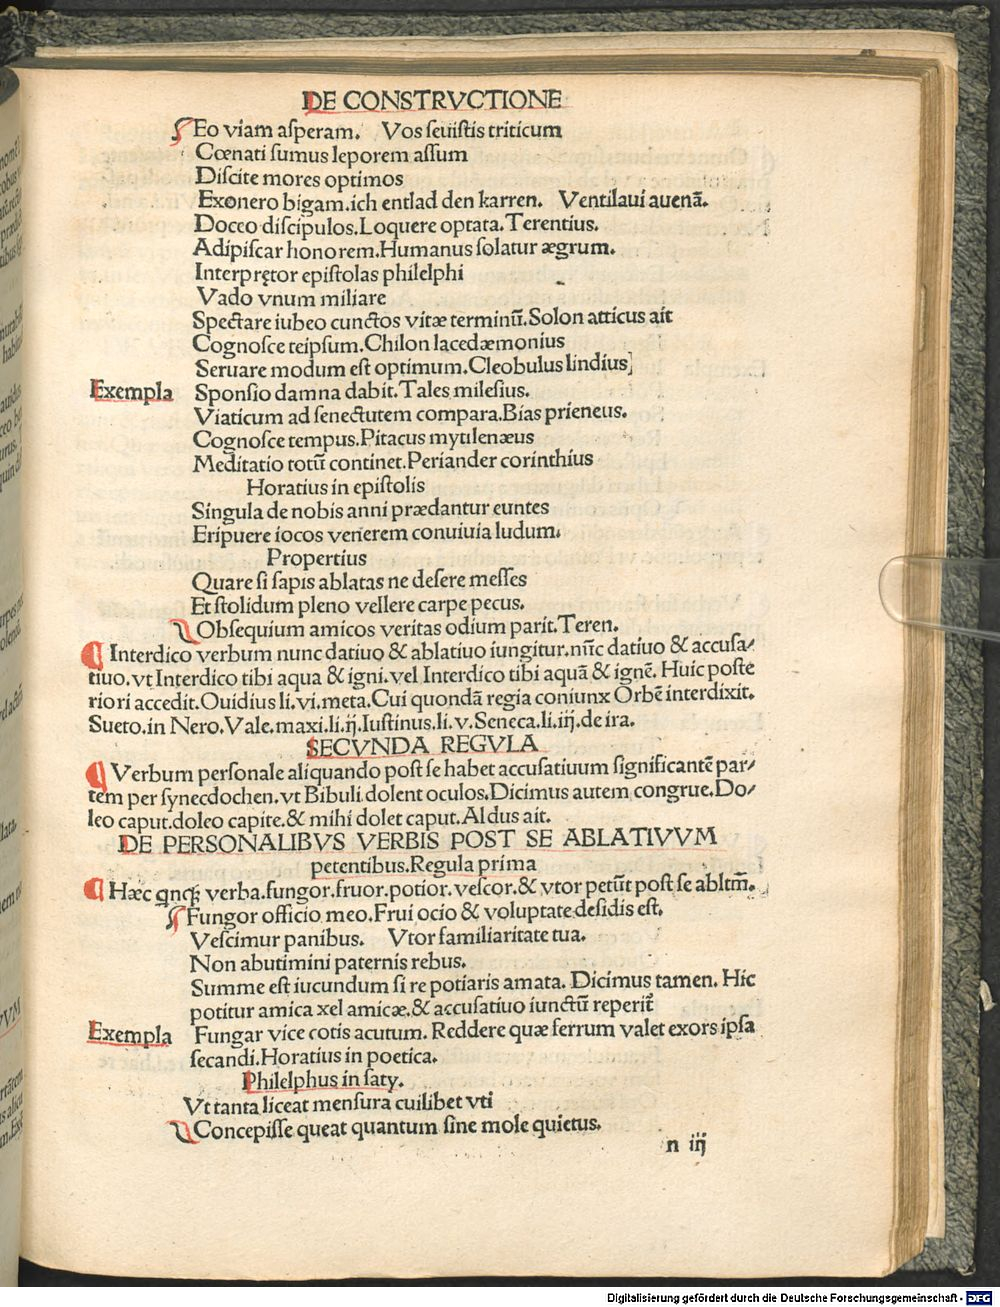 DE CONSTRVCTIONE
Eo viam asperam. Vos seuistis triticum
Cœnati sumus leporem assum
Discite mores optimos
Exonero bigam.ich entlad den karren. Ventilaui auenā.
Docco discipulos.Loquere optata.Terentius.
Adipiscar honorem.Humanus solatur ægrum.
Interprętor epistolas philelphi
Vado vnum miliare
Spectare iubeo cunctos vitæ terminū.Solon atticus ait
Cognosce teipsum.Chilon lacedæmonius
Seruare modum est optimum.Cleobulus lindius]
Exempla Sponsio damna dabit.Tales milesius.
Viaticum ad senectutem compara.Bias prieneus.
Cognosce tempus.Pitacus mytilenæus
Meditatio totū continet.Periander corinthius
Horatius in epistolis
Singula de nobis anni prædantur euntes
Eripuere iocos venerem conuiuia ludum.
Propertius
Quare si sapis ablatas ne desere messes
Et stolidum pleno vellere carpe pecus.
Obsequium amicos veritas odium parit.Teren.
¶ Interdico verbum nunc datiuo & ablatiuo iungitur.nūc datiuo & accusa/
tiuo.vt Interdico tibi aqua & igni.vel Interdico tibi aquā & ignē. Huic poste
riori accedit.Ouidius li.vi.meta.Cui quondā regia coniunx Orbē interdixit.
Sueto.in Nero.Vale.maxi.li.ij.Iustinus.li.v.Seneca.li.iij.de ira.
SECVNDA REGVLA
¶ Verbum personale aliquando post se habet accusatiuum significantē par/
tem per synecdochen.vt Bibuli dolent oculos.Dicimus autem congrue.Do/
leo caput.doleo capite.& mihi dolet caput.Aldus ait.
DE PERSONALIBVS VERBIS POST SE ABLATIVVM
petentibus.Regula prima
¶ Hæc qnꝙ verba.fungor.fruor.potior.vescor.& vtor petūt post se abltm̄.
Fungor officio meo.Frui ocio & voluptate desidis est.
Vescimur panibus. Vtor familiaritate tua.
Non abutimini paternis rebus.
Summe est iucundum si re potiaris amata. Dicimus tamen. Hic
potitur amica xel amicæ.& accusatiuo iunctū reperit᷑
Exempla Fungar vice cotis acutum. Reddere quæ ferrum valet exors ipsa
secandi.Horatius in poetica.
Philelphus in saty.
Vt tanta liceat mensura cuilibet vti
Concepisse queat quantum sine mole quietus.
n iij
Digitalisierung gefördert durch die Deutsche Forschungsgemeinschaft - DFG